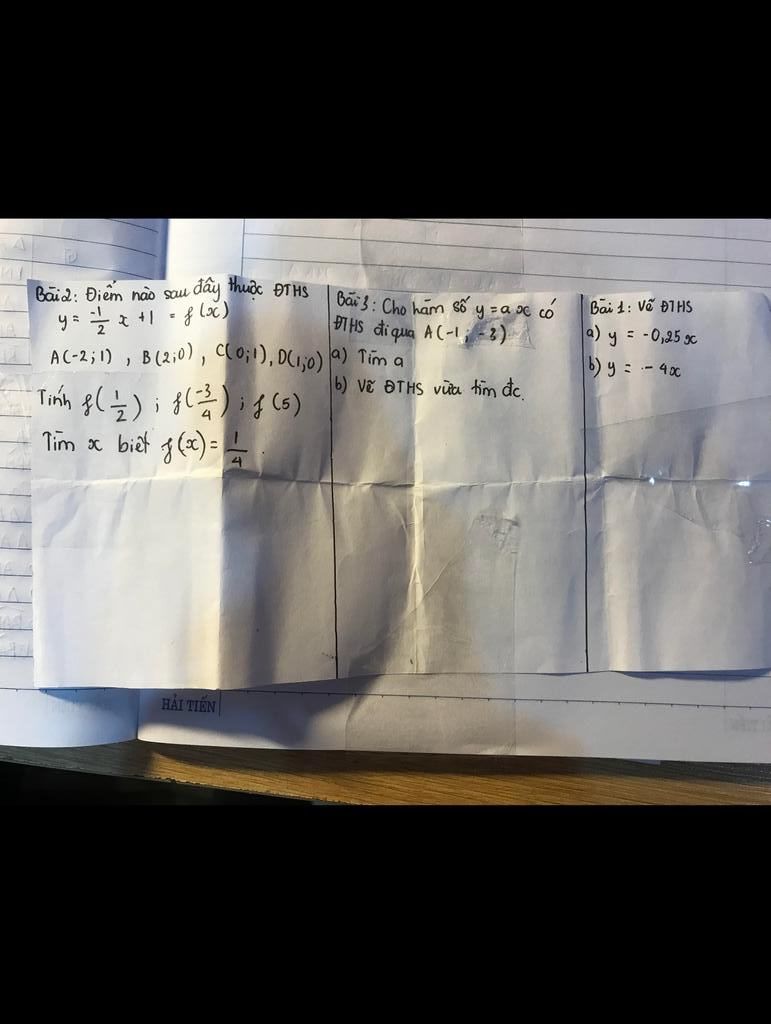 Bài 2: Điểm nào sau đây thuộc ĐTHS
y = -1/2 x + 1 = f(x)
A(-2;1) , B(2;0) , C(0;1), D(1;0)
Tính f(1/2) ; f(-3/4) ; f(5)
Tìm x biết f(x) = 1/4.
Bài 3: Cho hàm số y = ax có
ĐTHS đi qua A(-1; -3)
a) Tìm a
b) Vẽ ĐTHS vừa tìm đc.
Bài 1: Vẽ ĐTHS
a) y = -0,25x
b) y = -4x
HẢI TIẾN